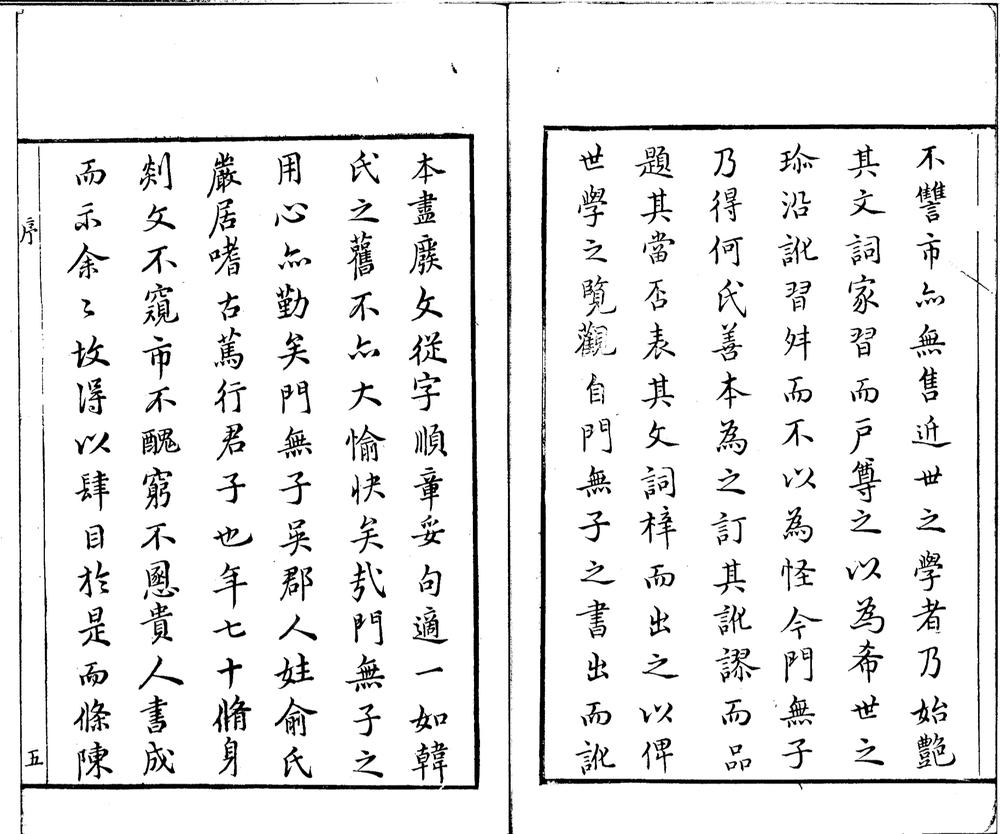 不讐市亦無售近世之學者乃始艷
其文詞家習而戸尊之以為希世之
珎沿訛習舛而不以為怪今門無子
乃得何氏善本為之訂其訛謬而品
題其當否表其文詞梓而出之以俾
世學之覽觀自門無子之書出而訛
本盡廢文從字順章妥句適一如韓
氏之舊不亦大愉快矣哉門無子之
用心亦勤矣門無子吳郡人姓俞氏
嚴居嗜古篤行君子也年七十脩身
剡文不窺市不醜窮不慁貴人書成
而示余〻故得以肆目於是而條陳
序
五